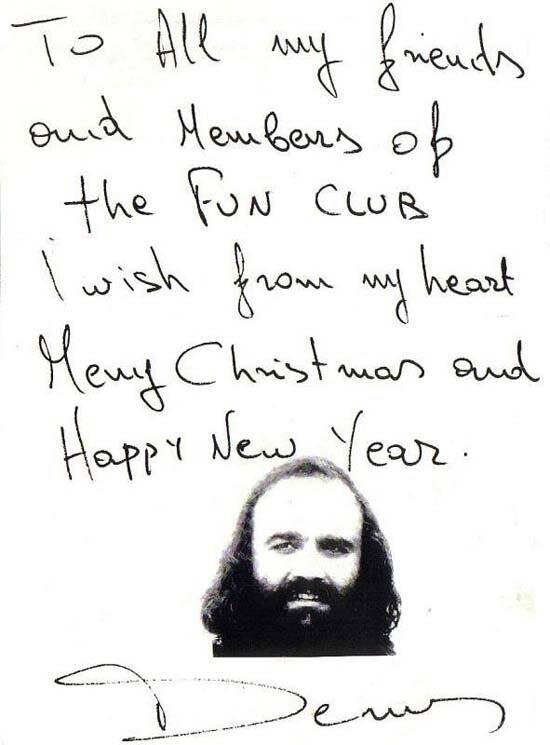 To All my friends
and Members of
the FUN CLUB
I wish from my heart
Merry Christmas and
Happy New Year.
Demis